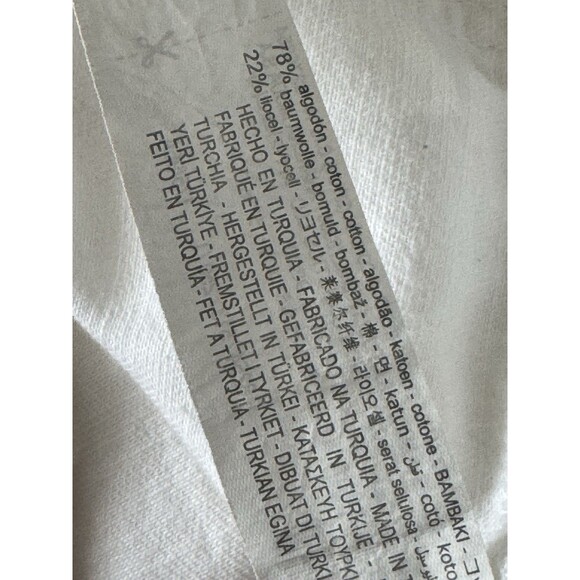 78% algodón - coton - cotton - algodão - katoen - cotone - BAMBAKI - コ
baumwolle - bomuld - bombaž - 棉 - 면 - katun - قطن - cotó - koto
22% liocel - lyocell - リヨセル - 莱赛尔纤维 - 라이오셀 - serat selulosa
HECHO EN TURQUIA - FABRICADO NA TURQUIA - MADE IN T
FABRIQUÉ EN TURQUIE - GEFABRICEERD IN TURKIJE -
TURCHIA - HERGESTELLT IN TÜRKEI - ΚΑΤΑΣΚΕΥΗ ΤΟΥΡΚΙ
YERİ TÜRKİYE - FREMSTILLET I TYRKIET - DIBUAT DI TURKI
FEITO EN TURQUÍA - FET A TURQUIA - TURKIAN EGINA